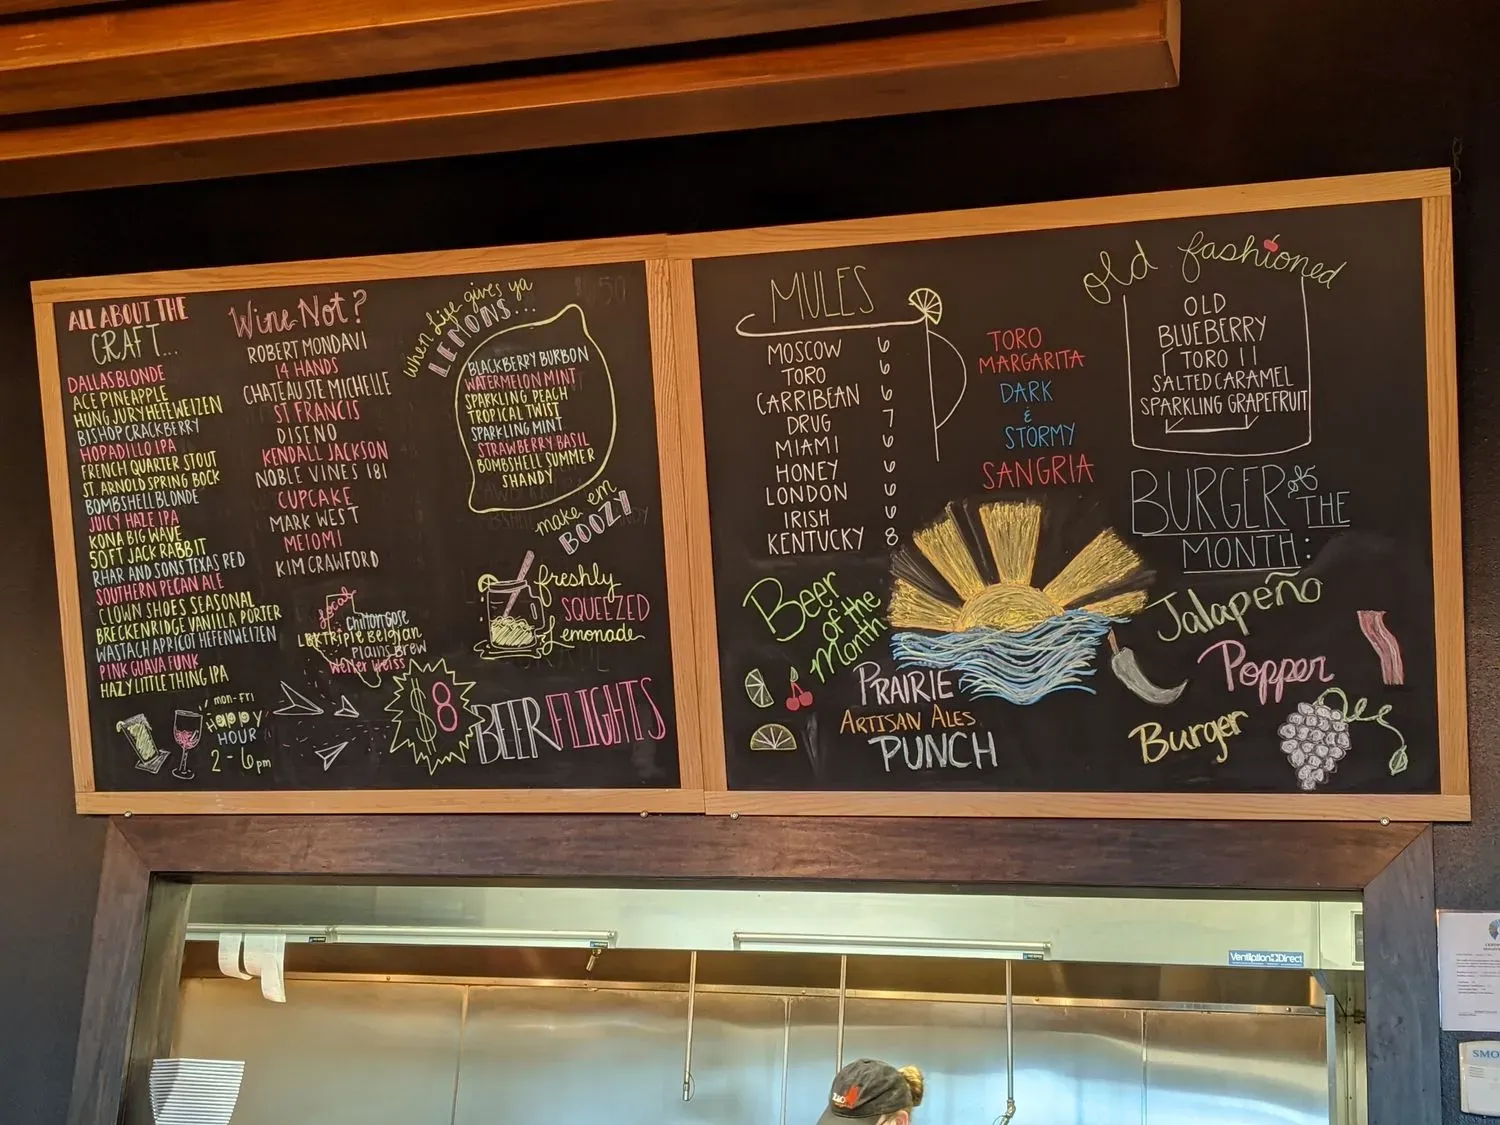 ALL ABOUT THE
CRAFT...
DALLAS BLONDE
ACE PINEAPPLE
HUNG JURY HEFEWEIZEN
BISHOP CRACKBERRY
HOPADILLO IPA
FRENCH QUARTER STOUT
ST. ARNOLD SPRING BOCK
BOMBSHELL BLONDE
JUICY HAZE IPA
KONA BIG WAVE
SOFT JACK RABBIT
RHAR AND SONS TEXAS RED
SOUTHERN PECAN ALE
CLOWN SHOES SEASONAL
BRECKENRIDGE VANILLA PORTER
WASTACH APRICOT HEFENWEIZEN
PINK GUAVA FUNK
HAZY LITTLE THING IPA
mon-FRI
HAPPY
HOUR
2-6pm
Wine Not?
ROBERT MONDAVI
14 HANDS
CHATEAU STE MICHELLE
ST FRANCIS
DISENO
KENDALL JACKSON
NOBLE VINES 181
CUPCAKE
MARK WEST
MEIOMI
KIM CRAWFORD
local
Chilton Gose
LBK Triple Belgian
Plains Brew
Weiss
when life gives ya
LEMONS...
BLACKBERRY BURBON
WATERMELON MINT
SPARKLING PEACH
TROPICAL TWIST
SPARKLING MINT
STRAWBERRY BASIL
BOMBSHELL SUMMER
SHANDY
make em
BOOZY
freshly
SQUEEZED
Lemonade
$8
BEER FLIGHTS
MULES
MOSCOW 6
TORO 6
CARRIBEAN 6
DRUG 7
MIAMI 6
HONEY 6
LONDON 6
IRISH 6
KENTUCKY 8
TORO
MARGARITA
DARK
&
STORMY
SANGRIA
Beer
of the
Month
PRAIRIE
ARTISAN ALES
PUNCH
old fashioned
OLD
BLUEBERRY
TORO 11
SALTED CARAMEL
SPARKLING GRAPEFRUIT
BURGER of THE
MONTH:
Jalapeño
Popper
Burger
VentilationDirect
SMO